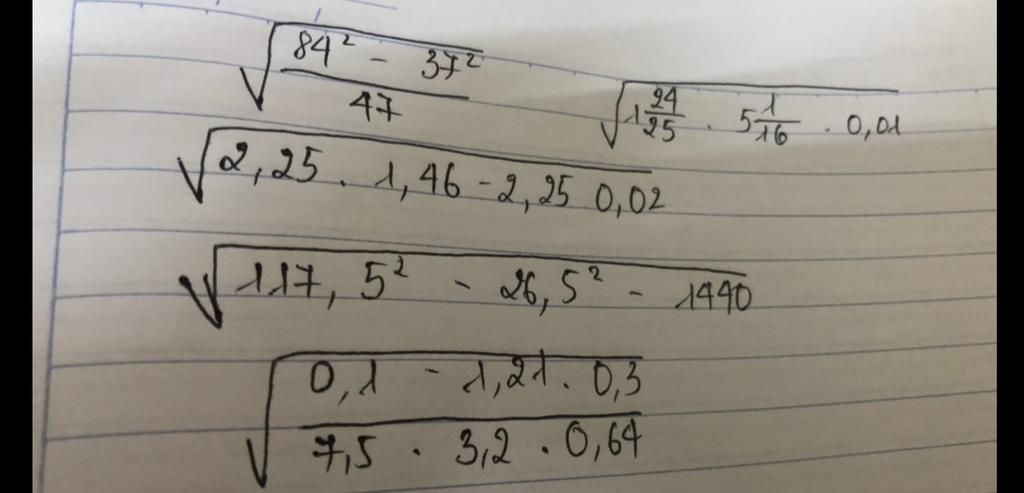 √((84² - 37²)/47)
√(1 24/25 . 5 1/16 . 0,01)
√(2,25 . 1,46 - 2,25 0,02)
√(117,5² - 26,5² - 1440)
√((0,1 - 1,21 . 0,3)/(7,5 . 3,2 . 0,64))